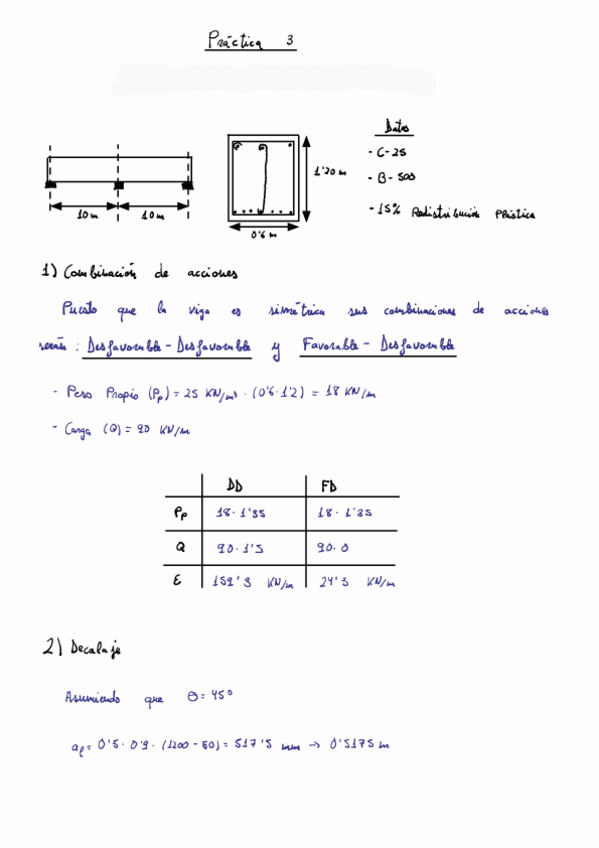 Práctica 3
Datos
- C-25
- B-500
- 15% Redistribución Plástica
10 m
10 m
1'20 m
0'6 m
1) Combinación de acciones
Puesto que la viga es simétrica sus combinaciones de acciones
serán: Desfavorable - Desfavorable y Favorable - Desfavorable
- Peso Propio (Pp) = 25 KN/m³ · (0'6·1'2) = 18 KN/m
- Carga (Q) = 90 KN/m
DD FD
Pp 18·1'35 18·1'35
Q 90·1'5 90·0
Σ 159'3 KN/m 24'3 KN/m
2) Decalaje
Asumiendo que θ = 45º
aℓ = 0'5·0'9·(1200-50) = 517'5 mm → 0'5175 m